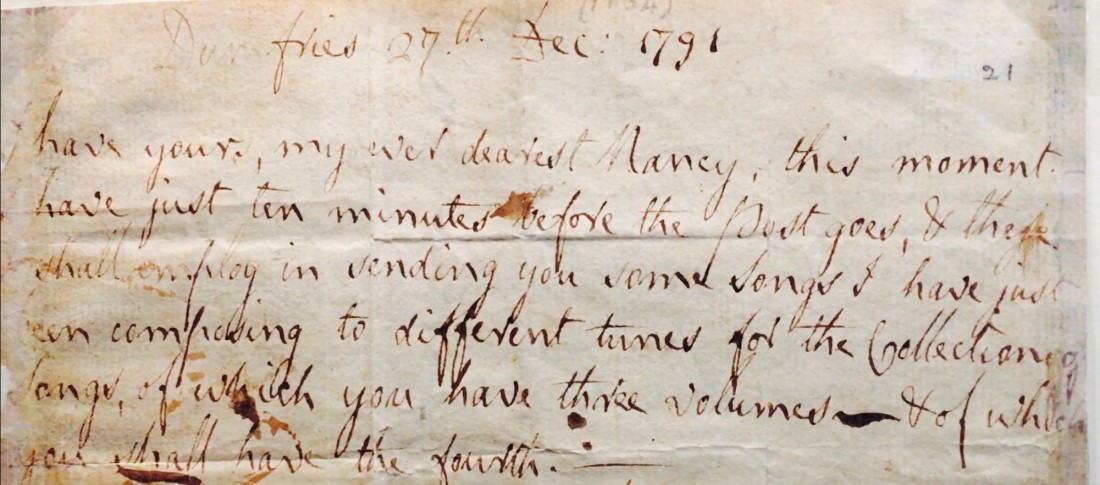 Dumfries 27.th Dec: 1791
21
have yours, my ever dearest Nancy, this moment.
have just ten minutes before the Post goes, & these
shall employ in sending you some songs I have just
een composing to different tunes for the Collection of
songs, of which you have three volumes — & of which
you shall have the fourth. —